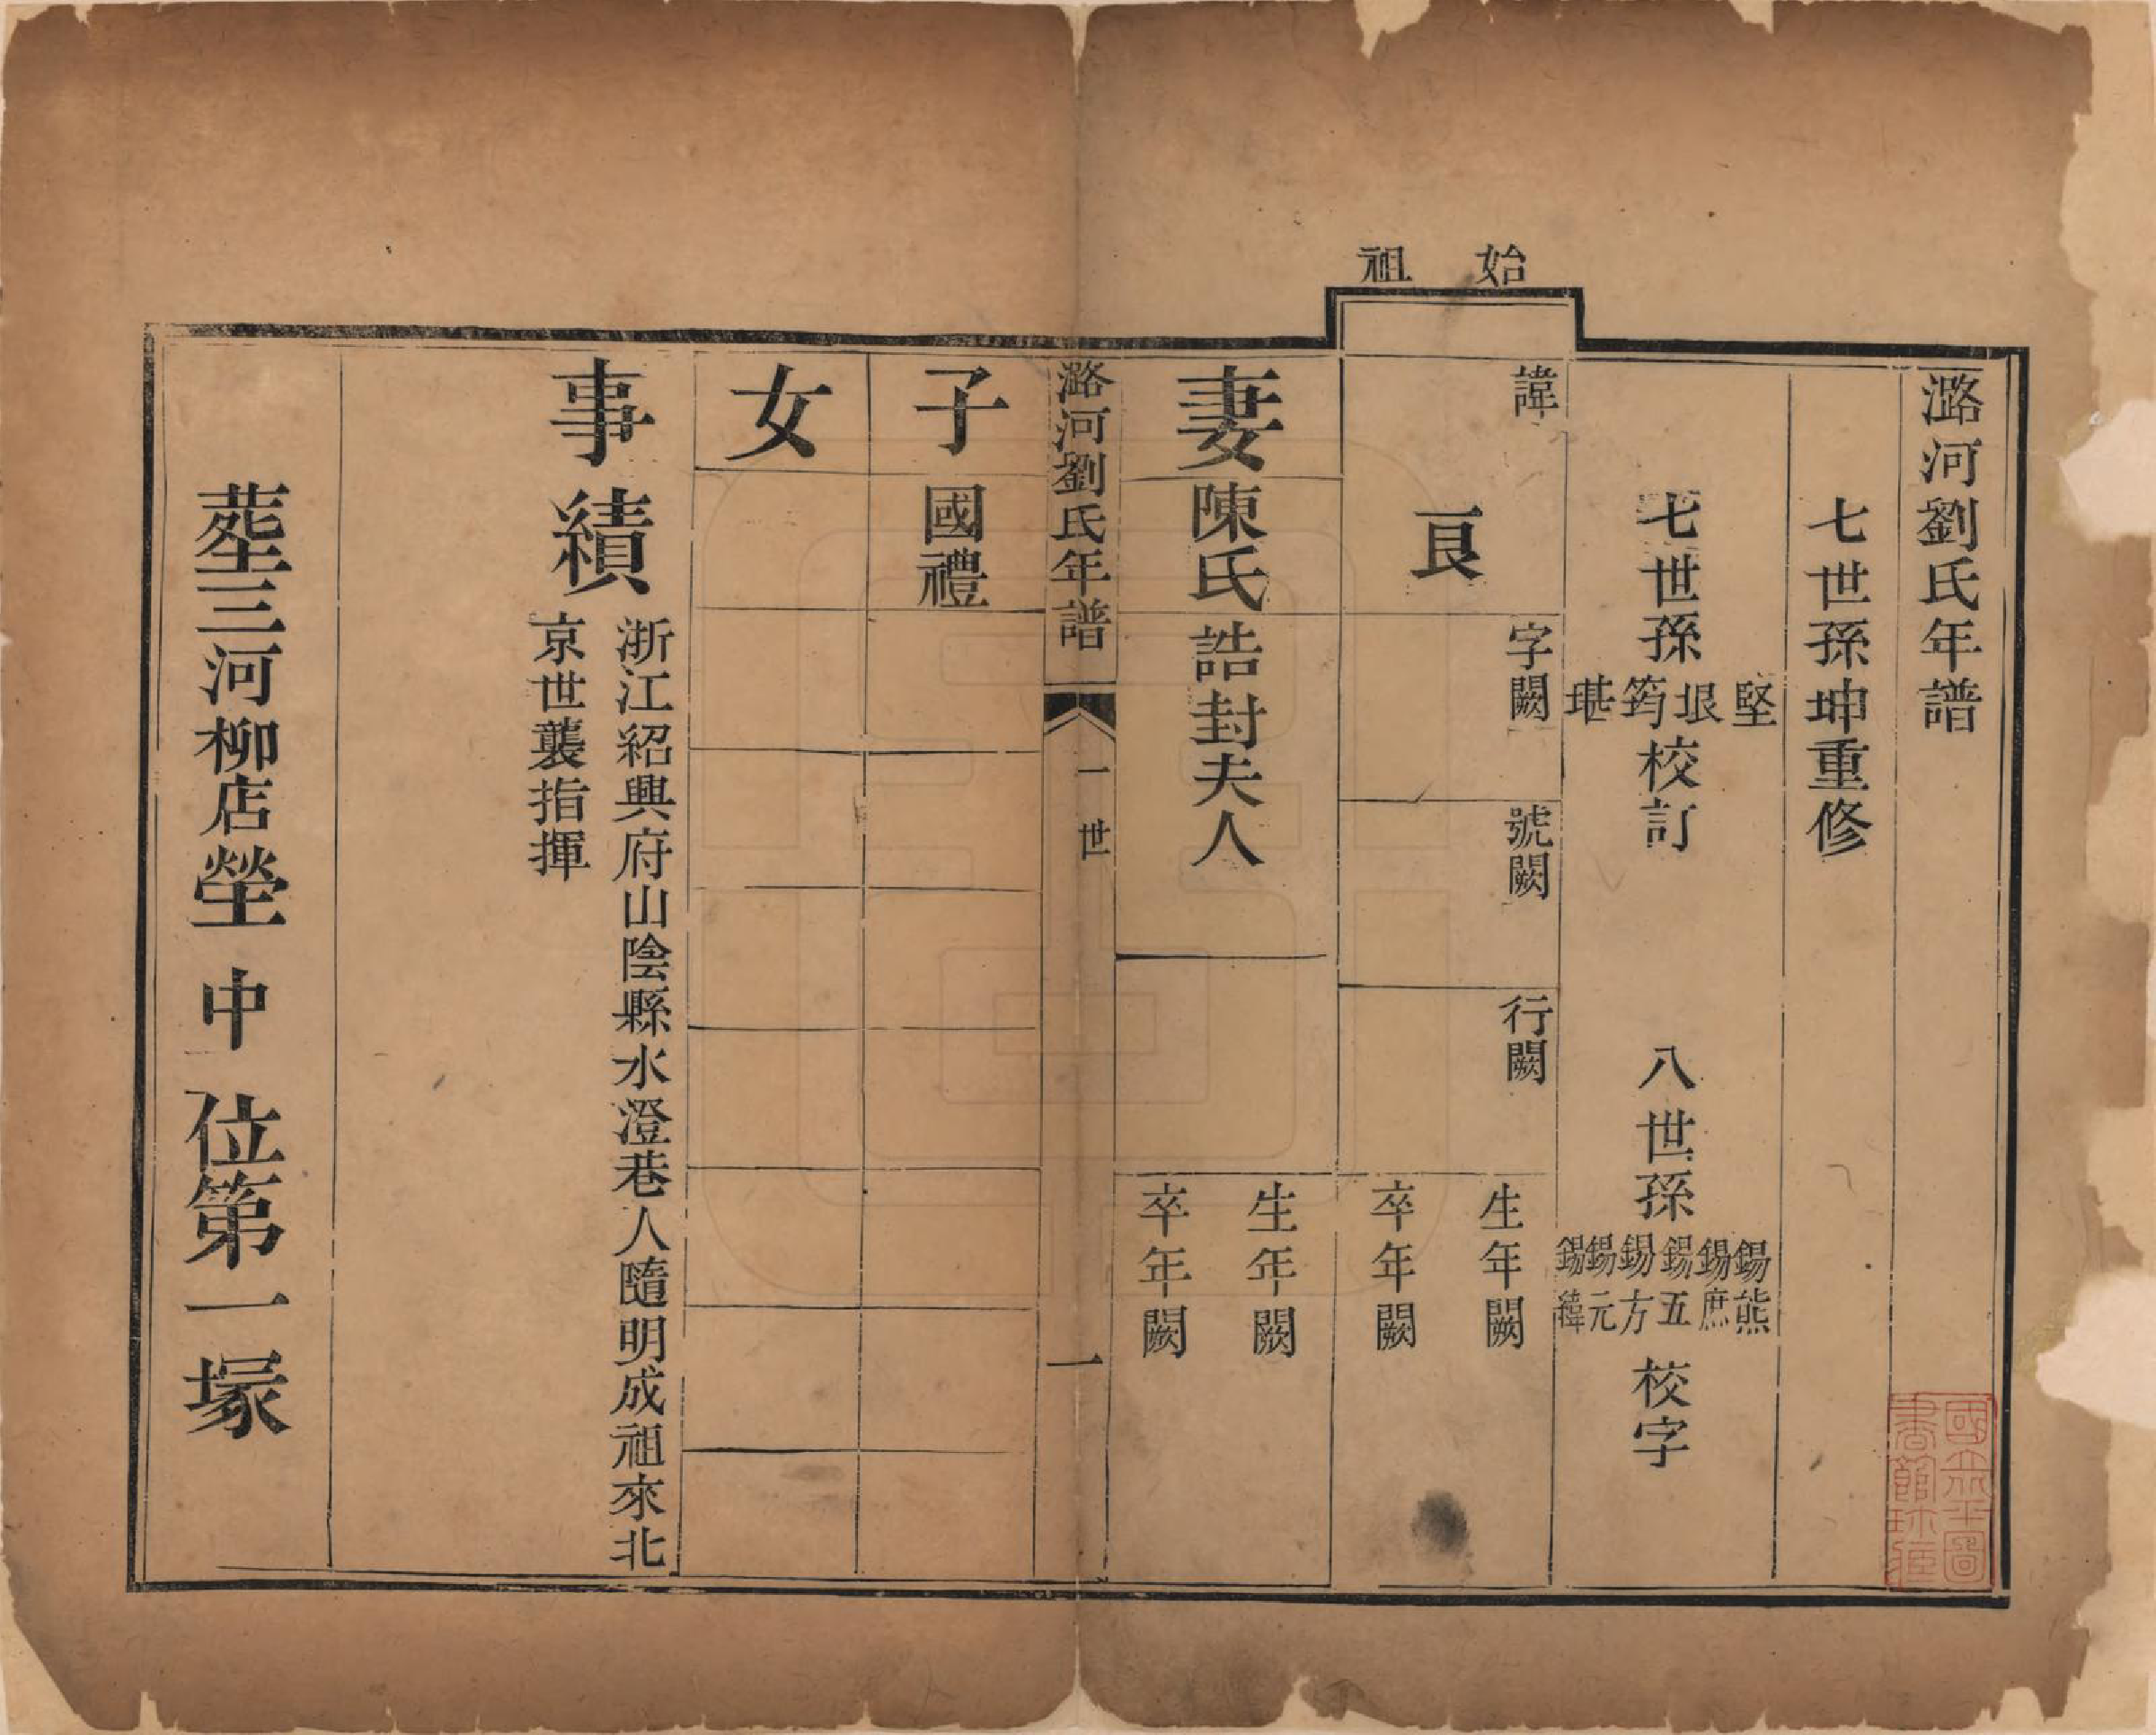 潞河劉氏年譜
七世孫坤重修
七世孫堅垠筠堪校訂
八世孫錫熊錫庶錫五錫方錫元錫緯校字
始祖
諱良
字闕
號闕
行闕
生年闕
卒年闕
妻陳氏誥封夫人
生年闕
卒年闕
潞河劉氏年譜
一世
一
子國禮
女
事績
浙江紹興府山陰縣水澄巷人隨明成祖來北
京世襲指揮
塟三河柳店塋中位第一塚
國立北平圖
書館珍藏